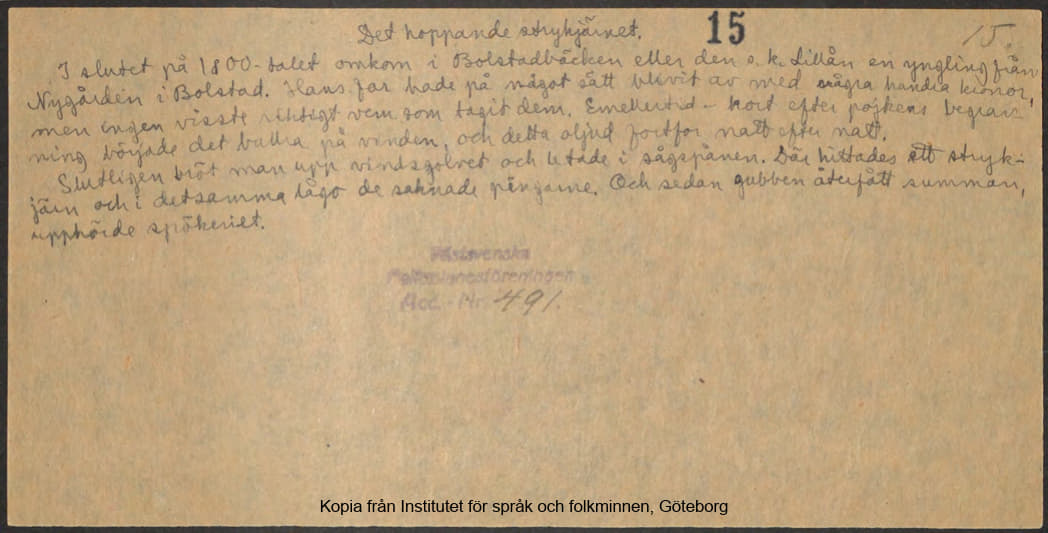 Det hoppande strykjärnet.
15
15.
I slutet på 1800-talet omkom i Bolstadbäcken eller den s. k. Lillån en yngling från
Nygården i Bolstad. Hans far hade på något sätt blivit av med några hundra kronor,
men ingen visste riktigt vem som tagit dem. Emellertid - kort efter pojkens begrav-
ning började det bullra på vinden, och detta oljud fortfor natt efter natt.
Slutligen bröt man upp vindsgolvet och letade i sågspånen. Där hittades ett stryk-
järn och i detsamma lågo de saknade pängarne. Och sedan gubben återfått summan,
upphörde spökeriet.
Västsvenska
Folkminnesföreningen
Acc.-Nr. 491.
Kopia från Institutet för språk och folkminnen, Göteborg